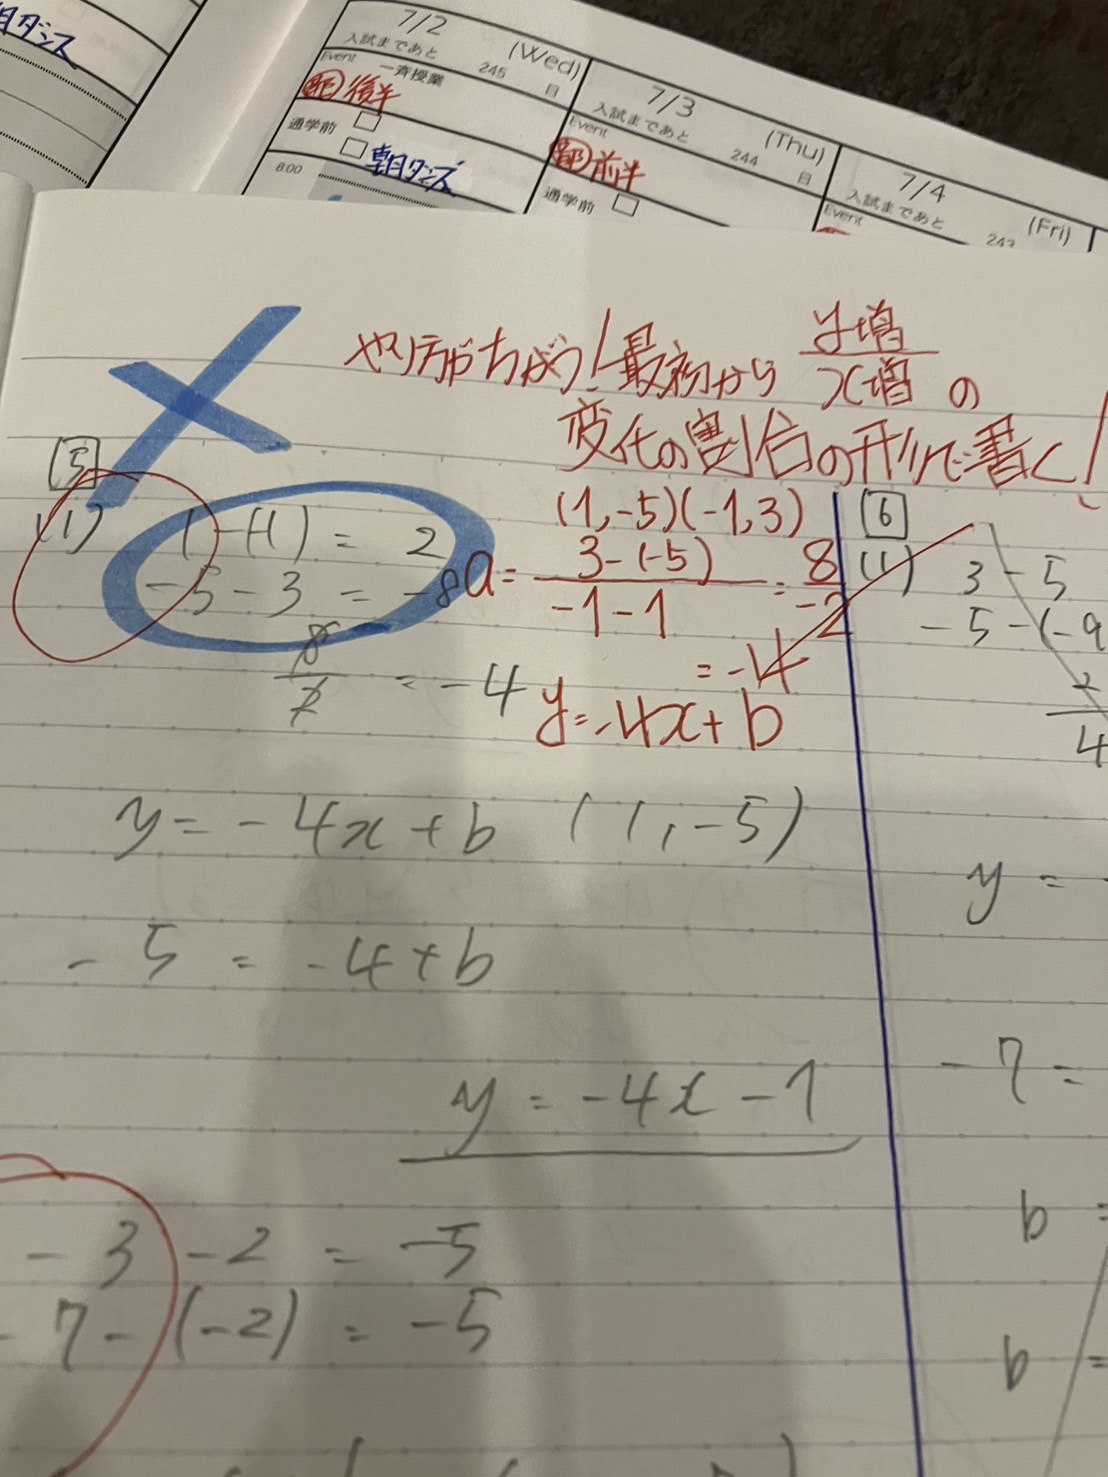 朝ダンス
7/2 (Wed)
入試まであと 245 日
Event 一斉授業
後半
通学前
8:00 朝ダンス
7/3 (Thu)
入試まであと 244 日
Event
前半
通学前
7/4 (Fri)
入試まであと 243
Event
やり方がちがう!最初から y増/x増 の
変化の割合の形で書く!
5
(1) 1-(-1) = 2
-5-3 = -8
8/2 = -4
(1,-5)(-1,3)
a = 3-(-5)/-1-1 = 8/-2
= -4
y=-4x+b
y = -4x+b (1,-5)
-5 = -4+b
y = -4x-1
-3-2 = -5
-7-(-2) = -5
6
(1) 3-5
-5-(-9
2
4
y =
-7 =
b =
b =